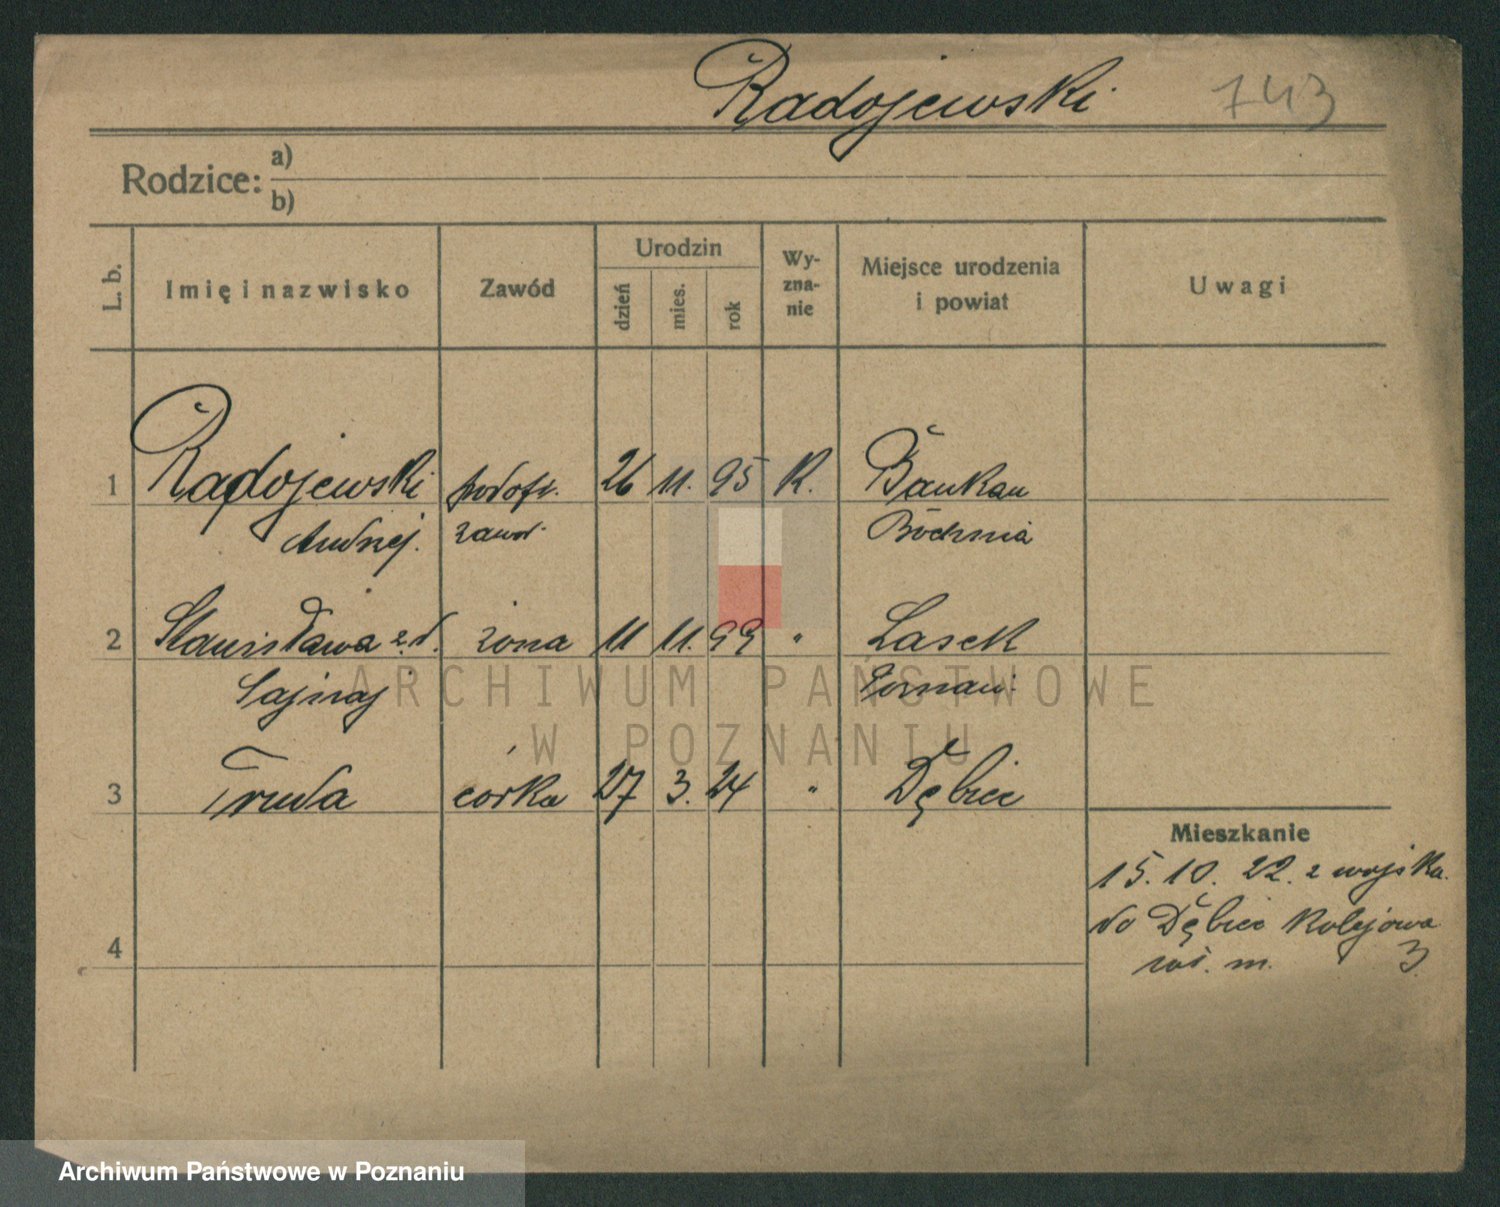 Radojewski 743
Rodzice: a)
b)
L. b. Imię i nazwisko Zawód Urodzin dzień mies. rok Wy-zna-nie Miejsce urodzenia i powiat Uwagi
1 Radojewski podofr. 26 11. 95 K. Baukau
Andrzej. zawod. Bochnia
2 Stanisława z. d. żona 11 11. 99 " Lasek
Sajnaj Poznań.
3 Truda córka 27 3. 24 " Dębiec
Mieszkanie
15. 10. 22. z wojska.
do Dębiec Kolejowa
4
m. 3.
ARCHIWUM PAŃSTWOWE
W POZNANIU
Archiwum Państwowe w Poznaniu